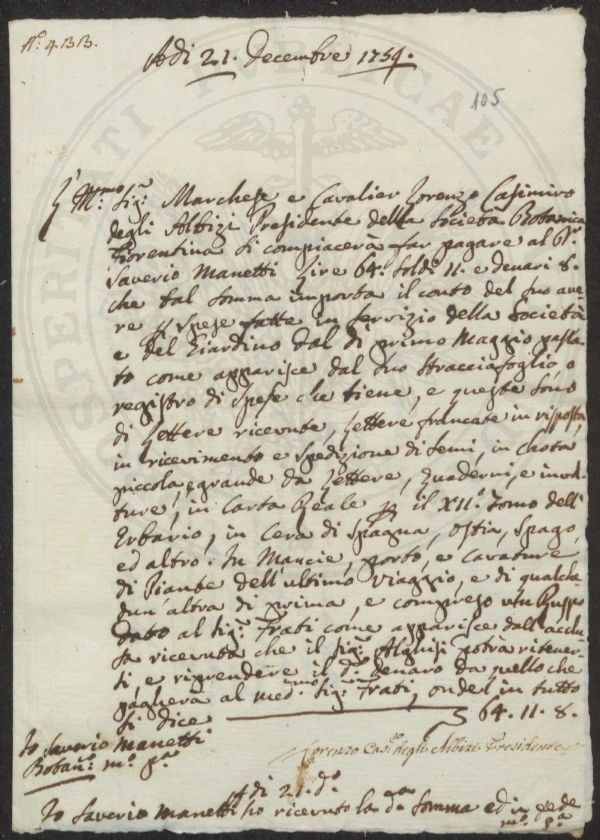 N.º 4.BB.
Adi 21. Decembre 1754.
105
L' Ill.mo Sig.r Marchese e Cavalier Lorenzo Casimiro
degli Albizi Presidente della Società Botanica
Fiorentina si compiacerà far pagare al Dr.
Saverio Manetti Lire 64. soldi 11. e denari 8.
che tal somma importa il conto del suo ave-
re p spese fatte in servizio della Società
e del Giardino dal dì primo Maggio passa-
to come apparisce dal suo stracciafoglio, o
registro di spese che tiene, e queste sono
di Lettere ricevute, Lettere francate in risposta,
in ricevimento e spedizione di semi, in charta
piccola, e grande da Lettere, Quaderni, e invol-
ture, in Carta Reale p il XII.º Tomo dell'
Erbario, in Cera di Spagna, Ostia, Spago,
ed altro. In Mancie, porto, e cavature
di Piante dell'ultimo viaggio, e di qualche-
dun'altra di prima, e compreso un Ruspo
dato al Sig.r Frati come apparisce dall'acclu-
sa ricevuta che il Sig.r Alghisi potrà ritener-
si e riprendere il d.º denaro da quello che
pagherà al med.mo Sig.r Frati, ondel in tutto
si dice 64. 11. 8.
Io Saverio Manetti
Botan.º m.º p.a
Lorenzo Cas.º degli Albizi Presidente
Adi 21. d.º
Io Saverio Manetti ho ricevuto la d.a somma ed in fede
m.º p.a